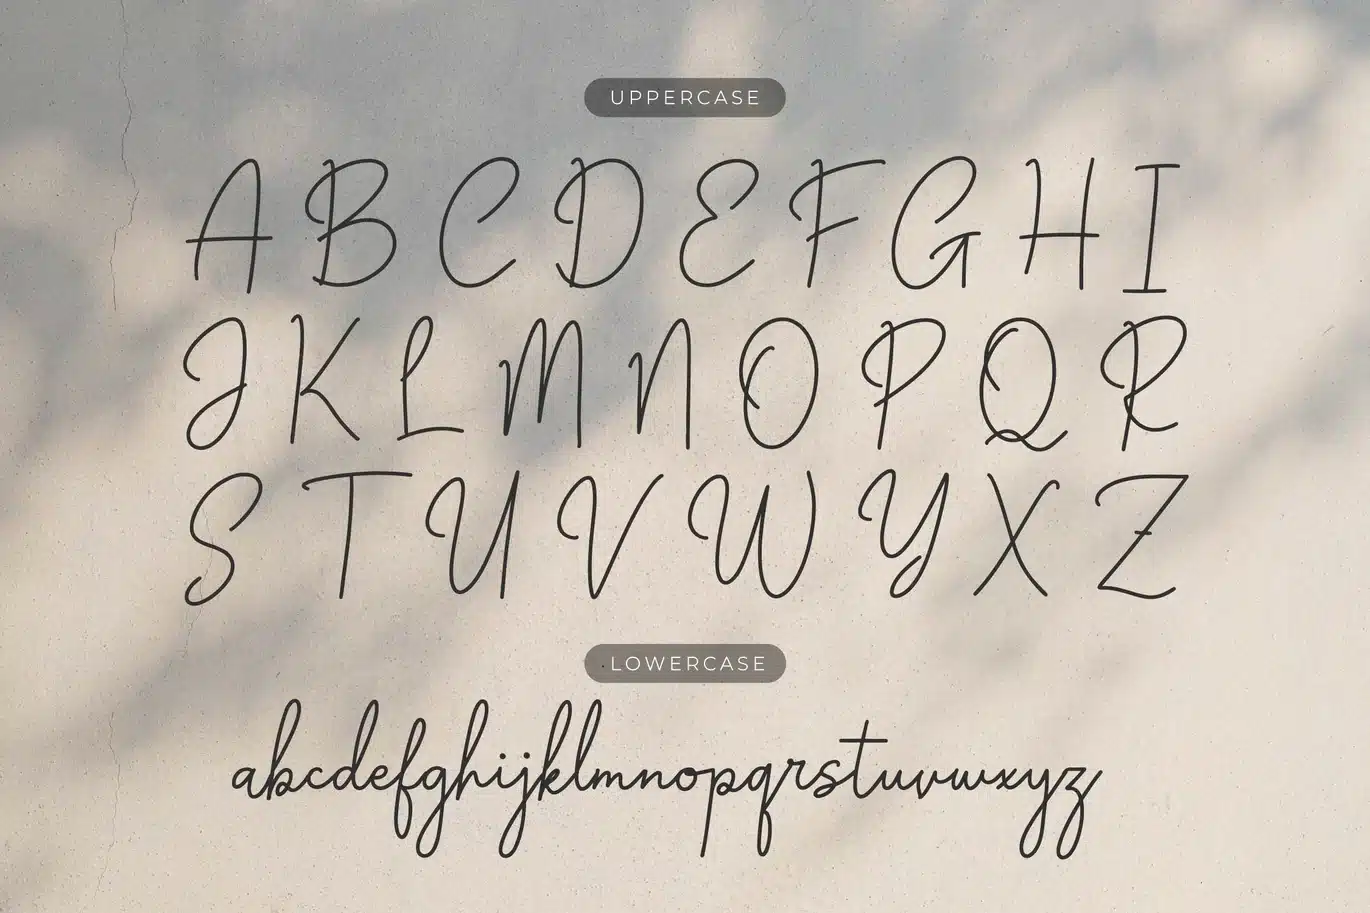 UPPERCASE
A B C D E F G H I
J K L M N O P Q R
S T U V W X Y Z
LOWERCASE
abcdefghijklmnopqrstuvwxyz